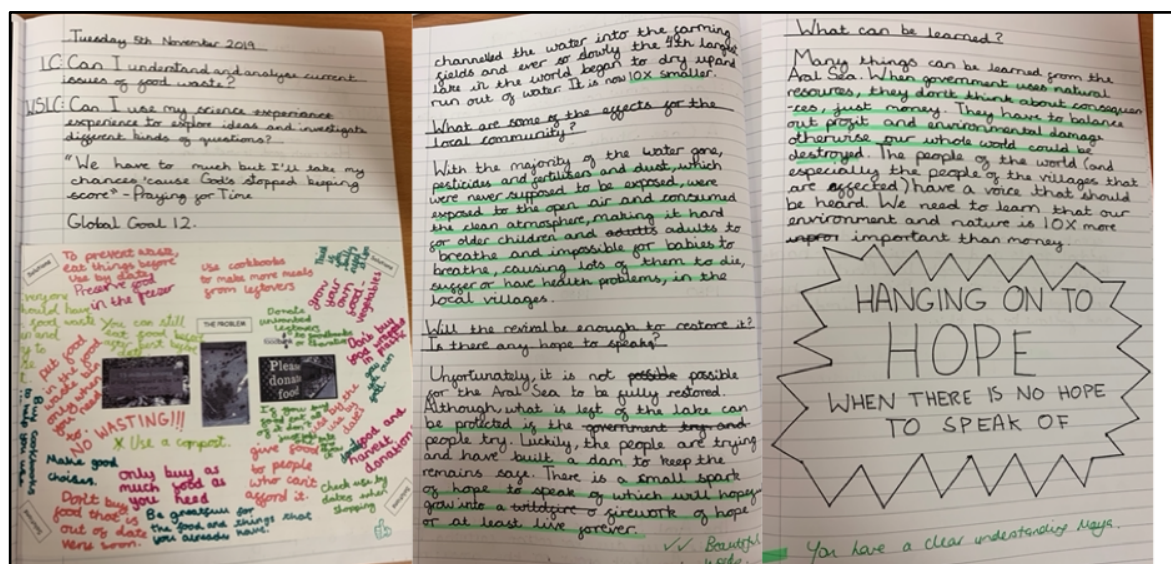 Tuesday 5th November 2019
LC: Can I understand and analyse current
issues of food waste?
WSLC: Can I use my science experiance
experience to explore ideas and investigate
different kinds of questions?
"We have to much but I'll take my
chances 'cause God's stopped keeping
score" - Praying for Time
Global Goal 12.
To prevent waste,
eat things before
use by date
Preserve food
in the freezer
use cookbooks
to make more meals
from leftovers
grow
your
own
food -
vegetables
Donate
unwanted
leftovers
to foodbanks
or charities
Don't buy
food wrapped
in plastic
You can still
eat food after
best before
date
THE PROBLEM
Please
donate
food
put food
in the food
waste bin
only when
you need
to.
NO WASTING!!!
Use a compost.
Buy cookbooks
to help you use
Make good
choices.
only buy as
much food as
you need
give food
to people
who can't
afford it.
food and
harvest
donation
Check use by
dates when
shopping
Don't buy
food that is
out of date
very soon.
Be greatfull for
the food and things that
you already have.
channelled the water into the farming
fields and ever so slowly the 4th largest
lake in the world began to dry up and
run out of water. It is now 10X smaller.
What are some of the effects for the
local community?
With the majority of the water gone,
pesticides and fertilisers and dust, which
were never supposed to be exposed, were
exposed to the open air and consumed
the clean atmosphere, making it hard
for older children and adults adults to
breathe and impossible for babies to
breathe, causing lots of them to die,
suffer or have health problems, in the
local villages.
Will the revival be enough to restore it?
Is there any hope to speak?
Unfortunately, it is not possible possible
for the Aral Sea to be fully restored.
Although what is left of the lake can
be protected if the government try and
people try. Luckily, the people are trying
and have built a dam to keep the
remains safe. There is a small spark
of hope to speak of which will hopefy
grow into a wildfire a firework of hope
or at least live forever.
Beautiful
words
What can be learned?
Many things can be learned from the
Aral Sea. When government uses natural
resources, they don't think about consequen
-ces, just money. They have to balance
out profit and environmental damage
otherwise our whole world could be
destroyed. The people of the world (and
especially the people of the villages that
are affected) have a voice that should
be heard. We need to learn that our
environment and nature is 10X more
important than money.
HANGING ON TO
HOPE
WHEN THERE IS NO HOPE
TO SPEAK OF
You have a clear understanding Maya.